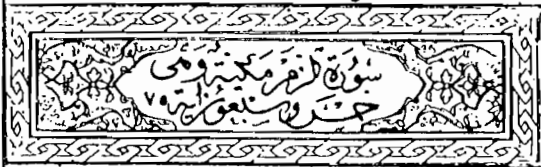 سورة الزمر مكية وهى
خمس وسبعون آية ٧٥